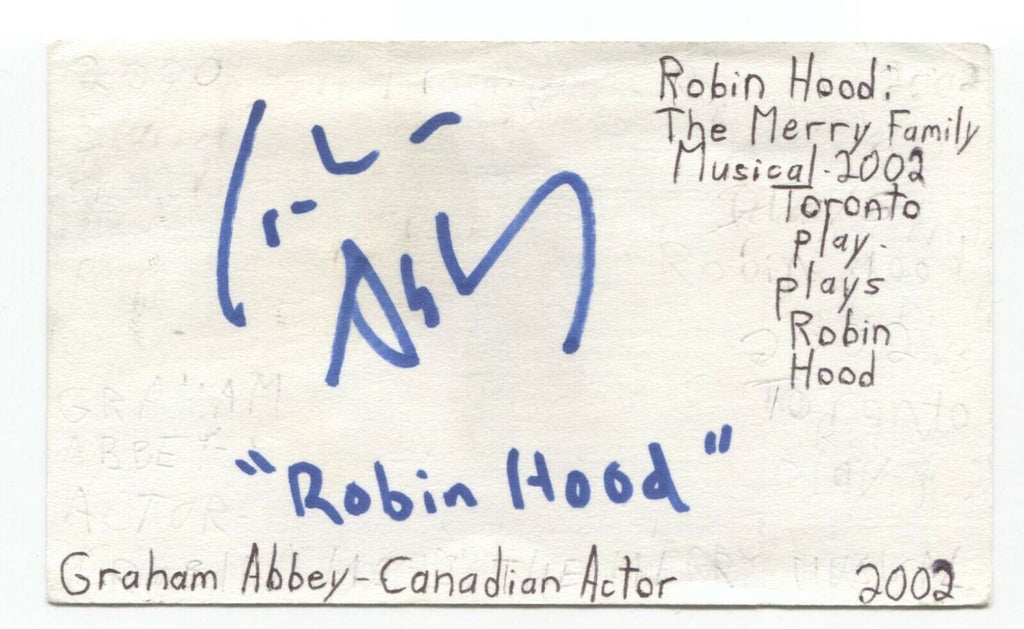 Robin Hood:
The Merry Family
Musical-2002
Toronto
play-
plays
Robin
Hood
"Robin Hood"
Graham Abbey-Canadian Actor 2002
2000
GRAHAM
ABBEY
ACTOR